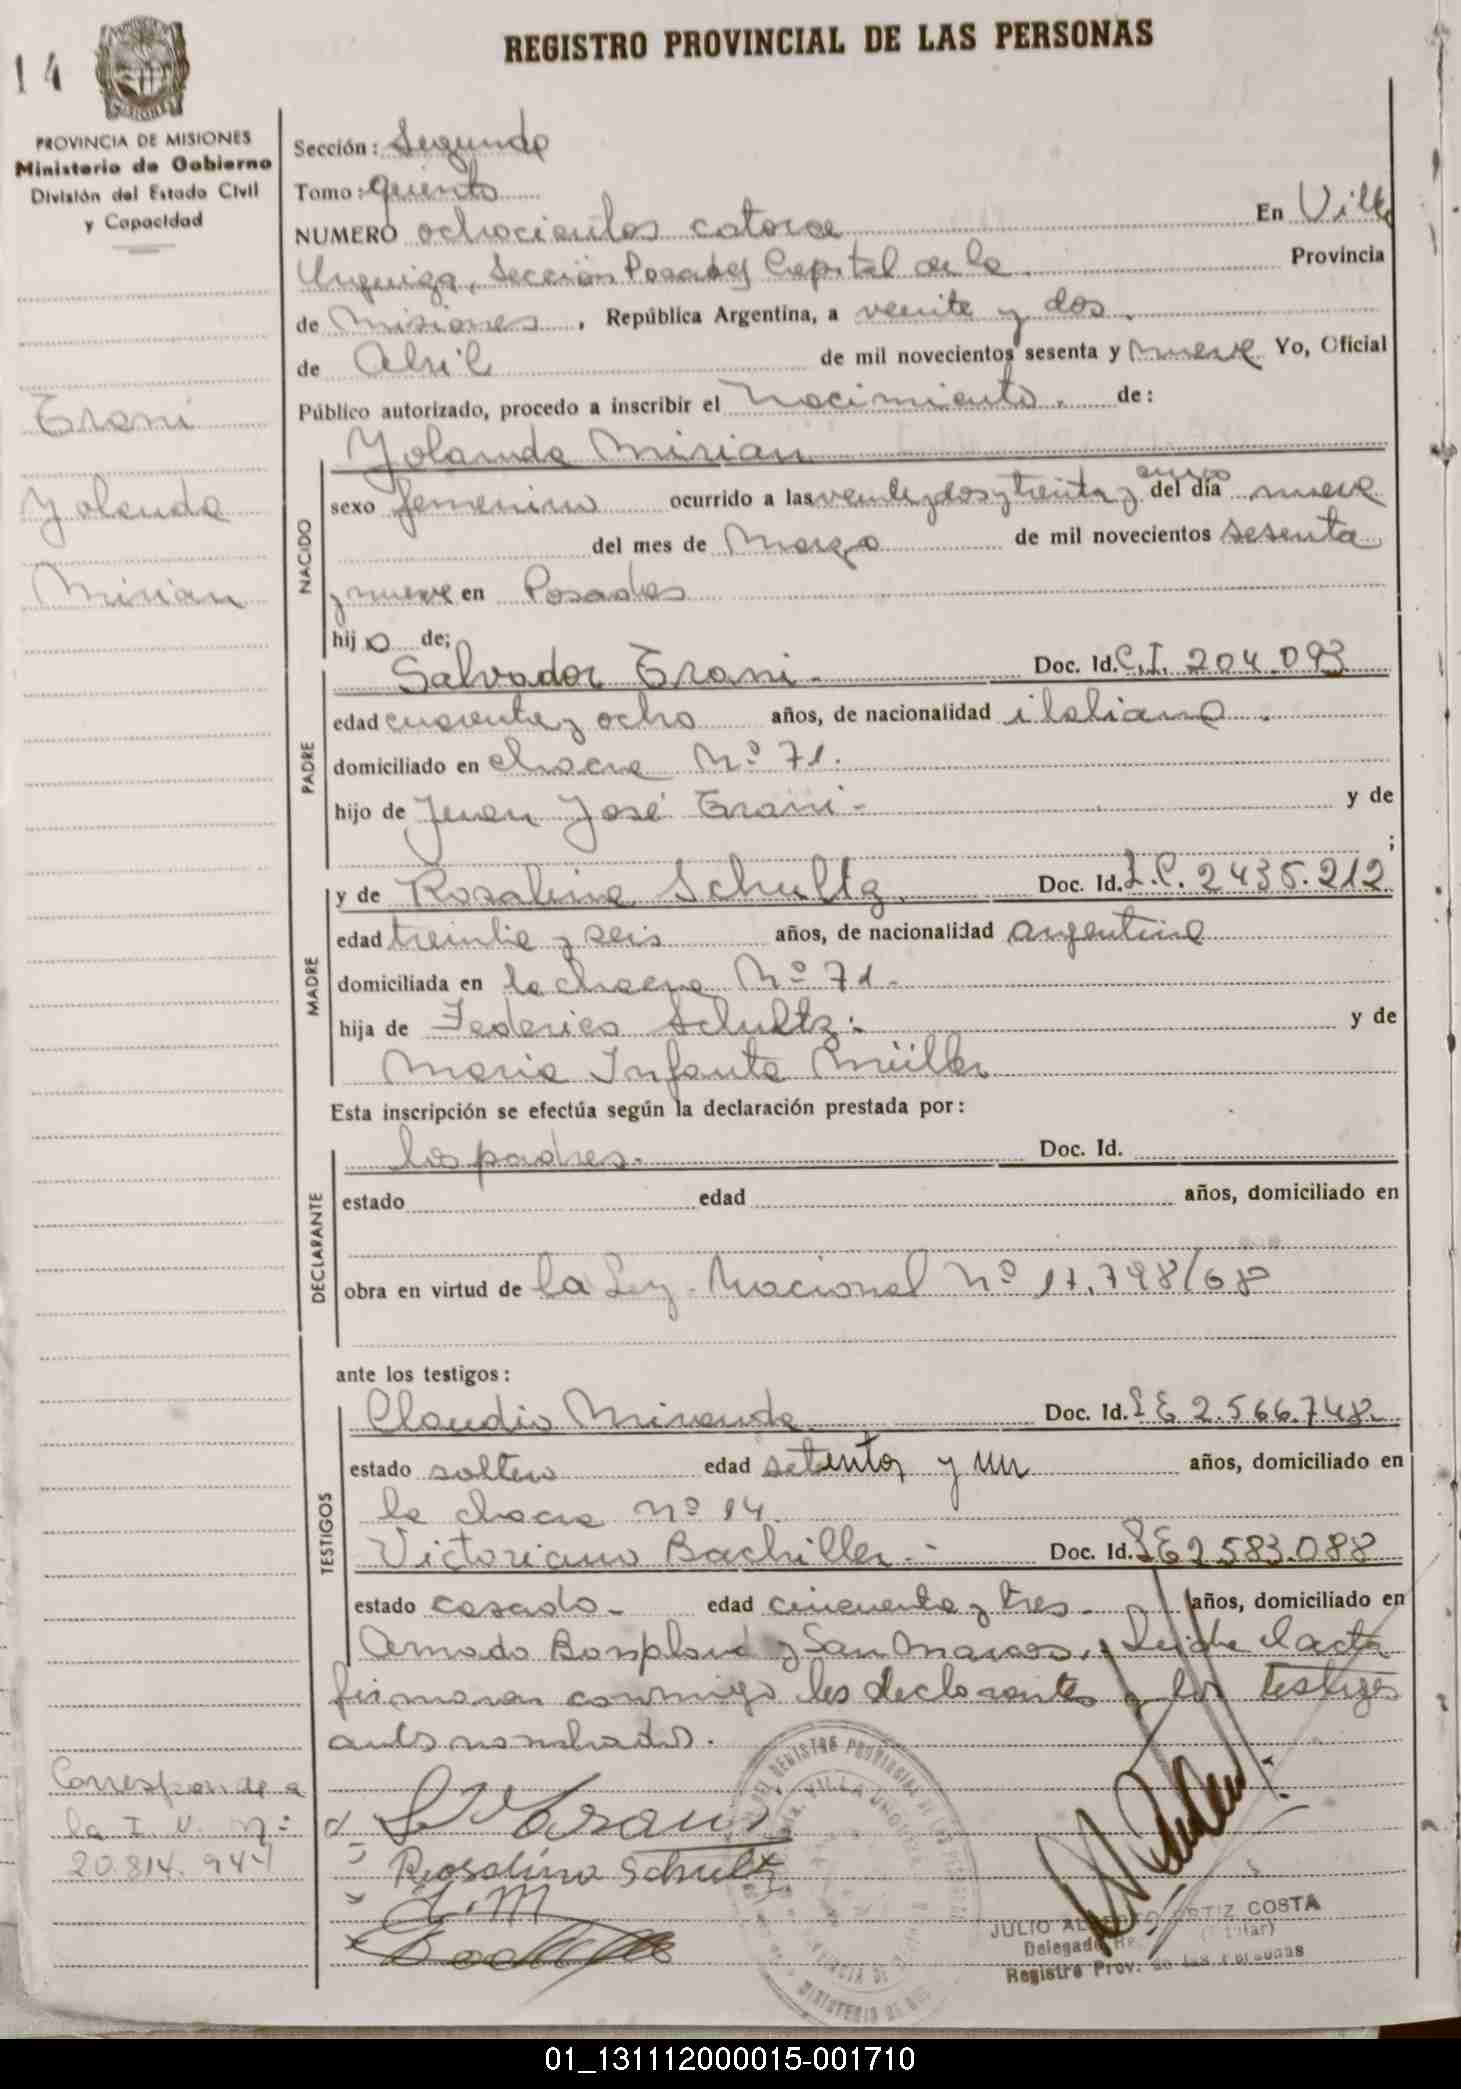 14
REGISTRO PROVINCIAL DE LAS PERSONAS
PROVINCIA DE MISIONES
Ministerio de Gobierno
División del Estado Civil
y Capacidad
Sección: Segunda
Tomo: Quinto
NUMERO ochocientos catorce En Villa
Urquiza, Sección Posadas Capital de la Provincia
de Misiones, República Argentina, a veinte y dos
de Abril de mil novecientos sesenta y nueve Yo, Oficial
Público autorizado, procedo a inscribir el Nacimiento. de:
Erani
Yolanda
Mirian
NACIDO
Yolanda Mirian
sexo femenino ocurrido a las veinte y dos y treinta y cinco del día nueve
del mes de Marzo de mil novecientos sesenta
y nueve en Posadas
hija de;
PADRE
Salvador Erani- Doc. Id. C.I. 204.093
edad cuarenta y ocho años, de nacionalidad italiana.
domiciliado en chacra Nº 71.
hijo de Juan José Erani- y de
;
MADRE
y de Rosalina Schultz. Doc. Id. L.C. 2435.212
edad treinta y seis años, de nacionalidad argentina
domiciliada en la chacra Nº 71-
hija de Federico Schultz. y de
Maria Infanta Müller
Esta inscripción se efectúa según la declaración prestada por:
DECLARANTE
los padres. Doc. Id.
estado edad años, domiciliado en
obra en virtud de la Ley Nacional Nº 17.798/68
ante los testigos:
TESTIGOS
Claudio Miranda Doc. Id. L E 2.566.748
estado soltero edad setenta y un años, domiciliado en
la chacra nº 14.
Victoriano Bachiller.- Doc. Id. L E 2.583.088
estado casado- edad cincuenta y tres- años, domiciliado en
Amado Bonpland y San Marcos. Leida el acta
firmaron conmigo los declarantes y los testigos
antes nombrados.
Corresponde a
la I. N. nº
20.814.944
Rosalina Schultz
JULIO ORTIZ COSTA
Delegado
Registro Prov. de las Personas
01_131112000015-001710